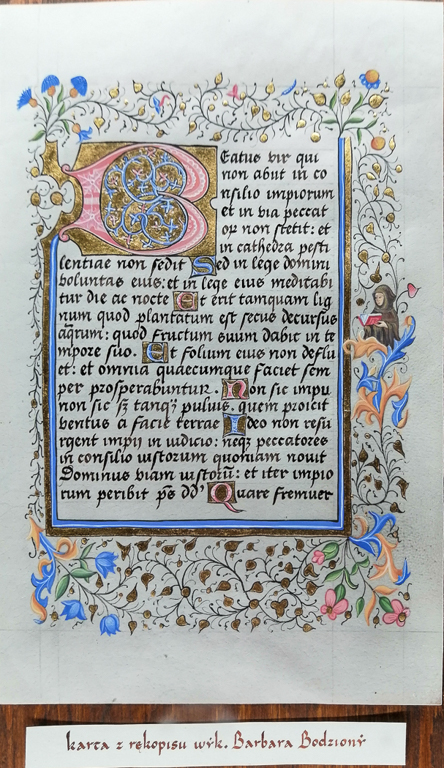 Beatus vir qui
non abut in co
nsilio impiorum
et in via peccat
oꝝ non stetit: et
in cathedra pesti
lentiae non sedit Sed in lege domini
voluntas eius: et in lege eius meditabi
tur die ac nocte Et erit tamquam lig
num quod plantatum est secus decursus
aqrum: quod fructum suum dabit in te
mpore suo. Et folium eius non deflu
et: et omnia quaecumque faciet sem
per prosperabuntur. Non sic impii
non sic sꝫ tanqꝫ pulvis, quem proicit
ventus a facie terrae Ideo non resu
rgent impij in iudicio: neqꝫ peccatores
in consilio iustorum quoniam novit
Dominus viam iustoru̅: et iter impio
rum peribit ps dd' Quare fremuer
karta z rękopisu wyk. Barbara Bodziony